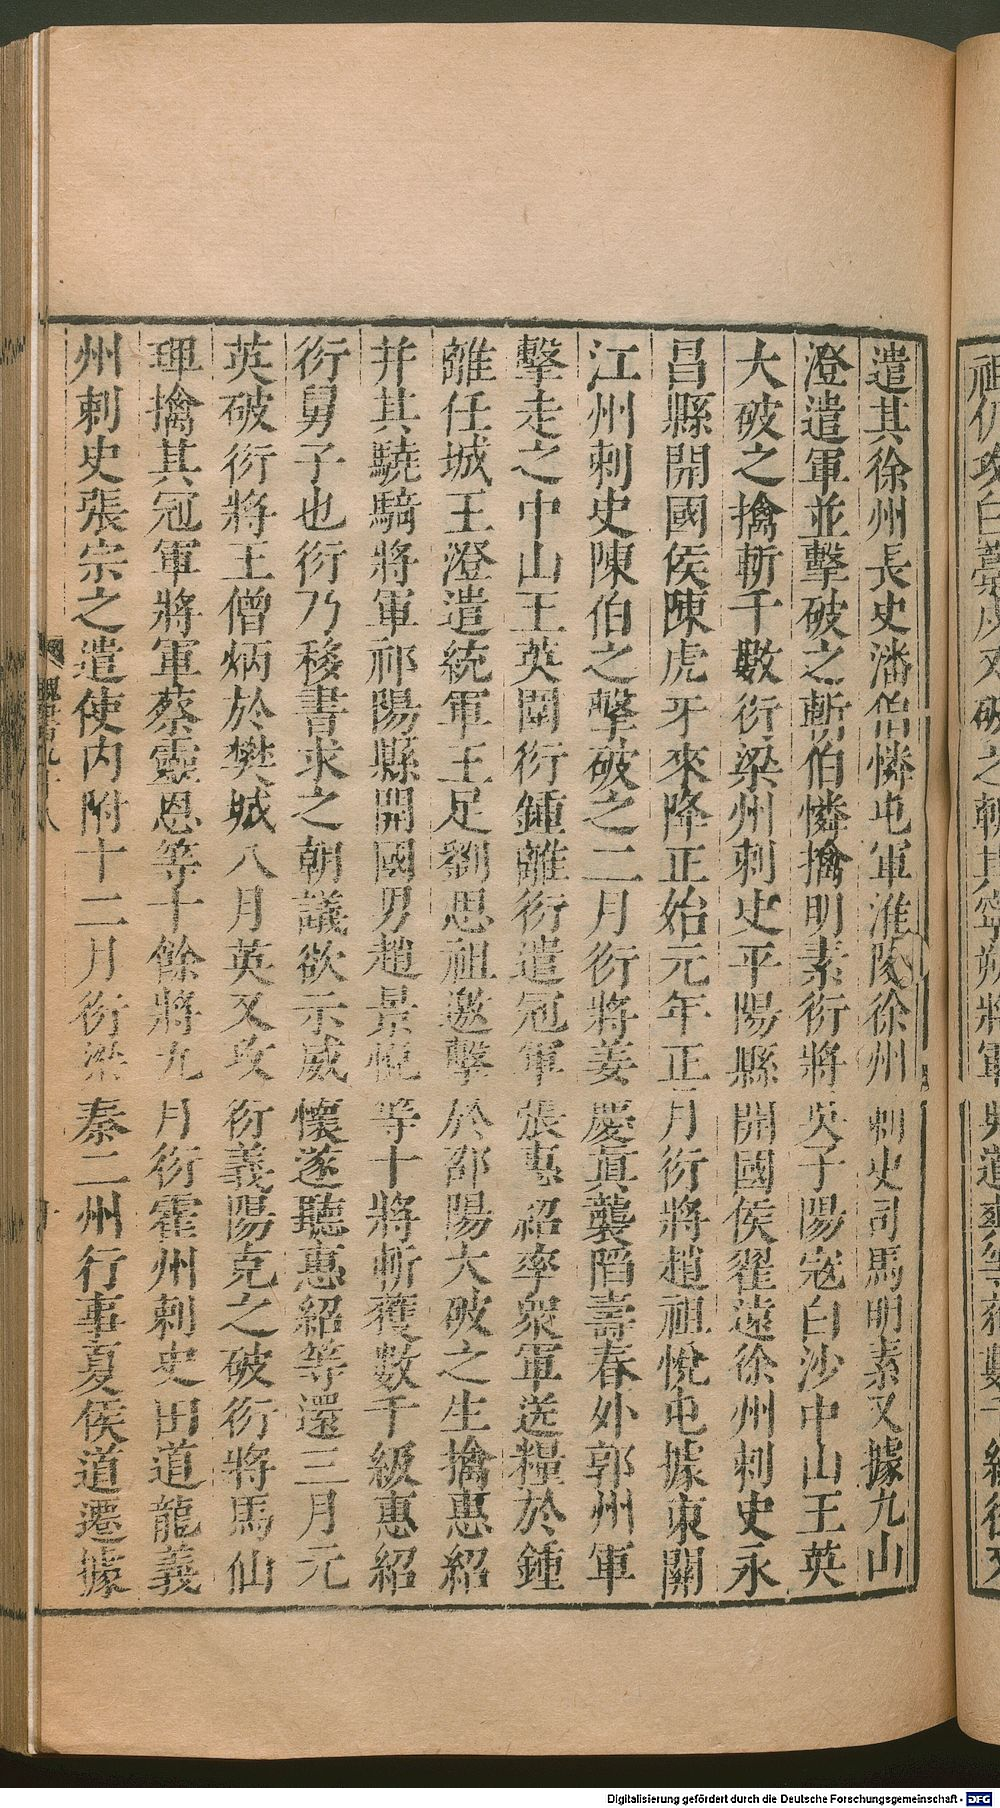 遣其徐州長史潘伯憐屯軍淮陵徐州刺史司馬明素又據九山
澄遣軍並擊破之斬伯憐擒明素衍將吳子陽寇白沙中山王英
大破之擒斬千數衍梁州刺史平陽縣開國侯翟遠徐州刺史永
昌縣開國侯陳虎牙來降正始元年正月衍將趙祖悅屯據東關
江州刺史陳伯之擊破之二月衍將姜慶眞襲陷壽春外郭州軍
擊走之中山王英圍衍鍾離衍遣冠軍張惠紹率衆軍送糧於鍾
離任城王澄遣統軍王足劉思祖邀擊於邵陽大破之生擒惠紹
并其驍騎將軍祁陽縣開國男趙景悅等十將斬獲數千級惠紹
衍舅子也衍乃移書求之朝議欲示威懷遂聽惠紹等還三月元
英破衍將王僧炳於樊城八月英又攻衍義陽克之破衍將馬仙
琕擒其冠軍將軍蔡靈恩等十餘將九月衍霍州刺史田道龍義
州刺史張宗之遣使內附十二月衍梁秦二州行事夏侯道遷據
Digitalisierung gefördert durch die Deutsche Forschungsgemeinschaft - DFG